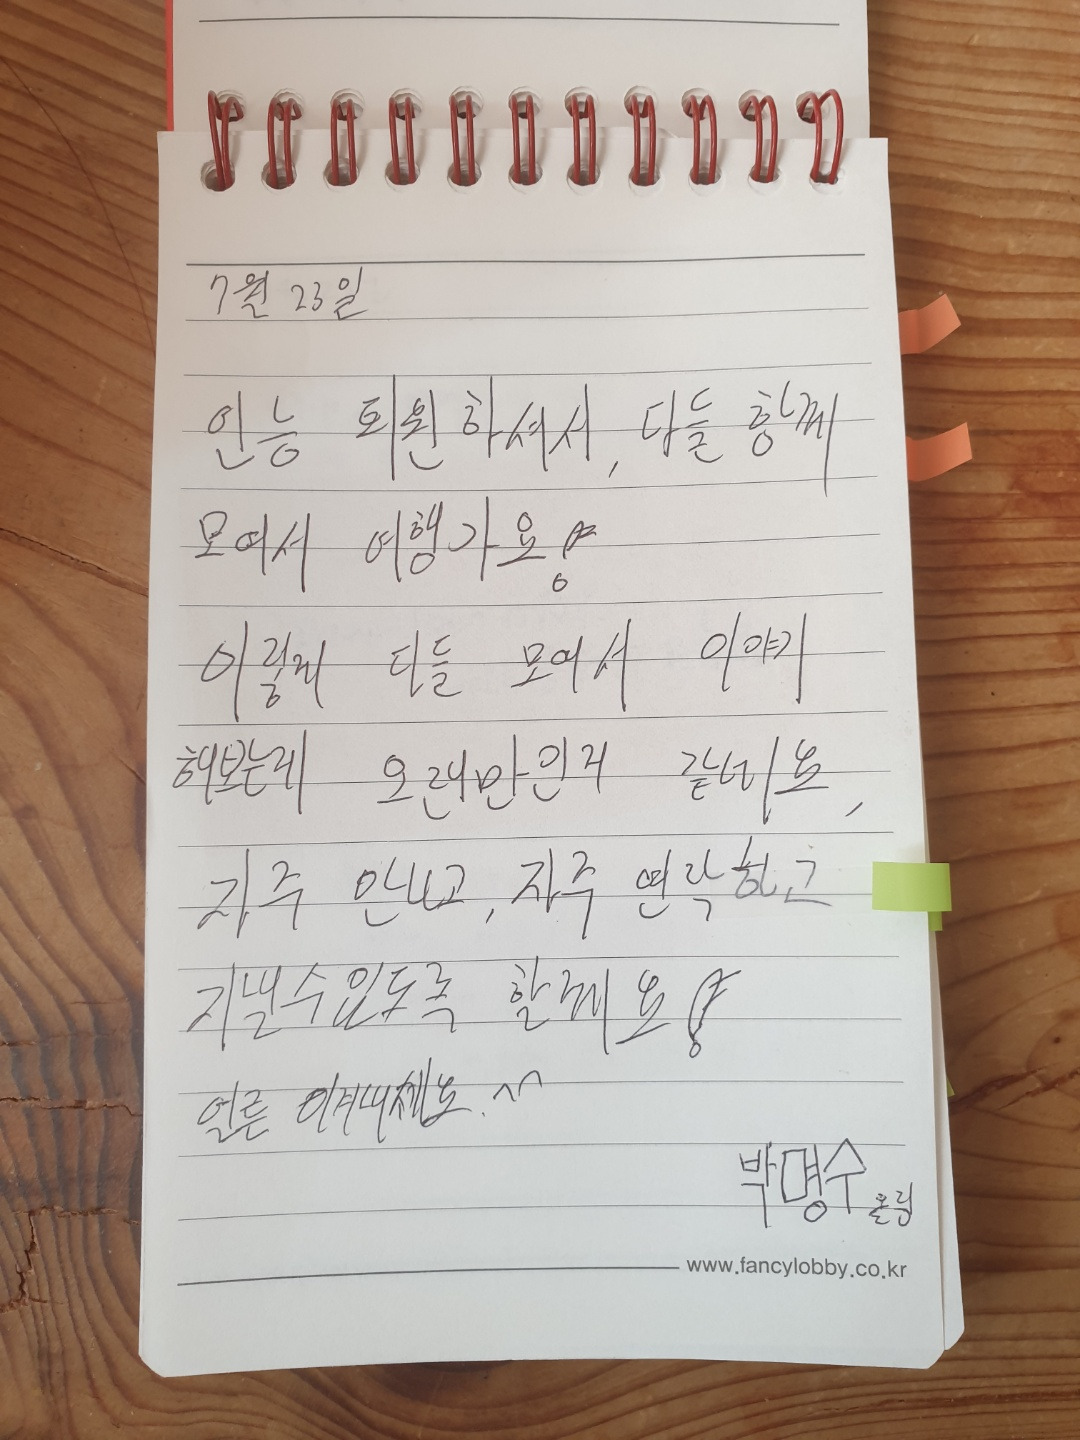 7월 23일
얼른 퇴원하셔서, 다들 함께
모여서 여행가요!
이렇게 다들 모여서 이야기
해보는게 오래만인거 같네요,
자주 만나고, 자주 연락하고
지낼수있도록 할께요!
얼른 이겨내세요. ^^
박명수 올림
www.fancylobby.co.kr